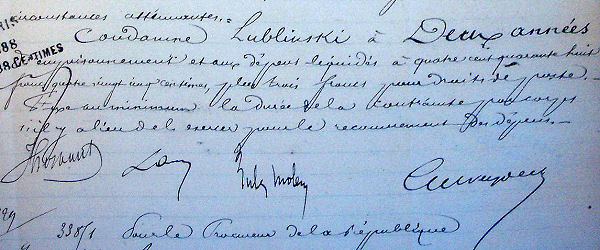 circonstances atténuantes.=
Condamne Lublinski à Deux années
d'emprisonnement et aux dépens liquidés à quatre cent quarante huit
francs quatre vingt centimes, plus trois francs pour droits de poste.
Fixe au minimum la durée de la contrainte par corps
s'il y a lieu de l'exercer pour le recouvrement des dépens.-
338/1 Pour le Procureur de la République
RIS
88
88.CENTIMES